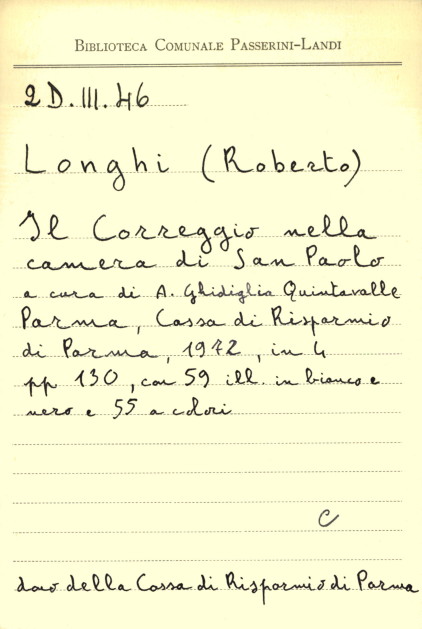 BIBLIOTECA COMUNALE PASSERINI-LANDI
2D.III.46
Longhi (Roberto)
Il Correggio nella
camera di San Paolo
a cura di A. Ghidiglia Quintavalle
Parma, Cassa di Risparmio
di Parma, 1972, in 4
pp 130, con 59 ill. in bianco e
nero e 55 a colori
C
dono della Cassa di Risparmio di Parma